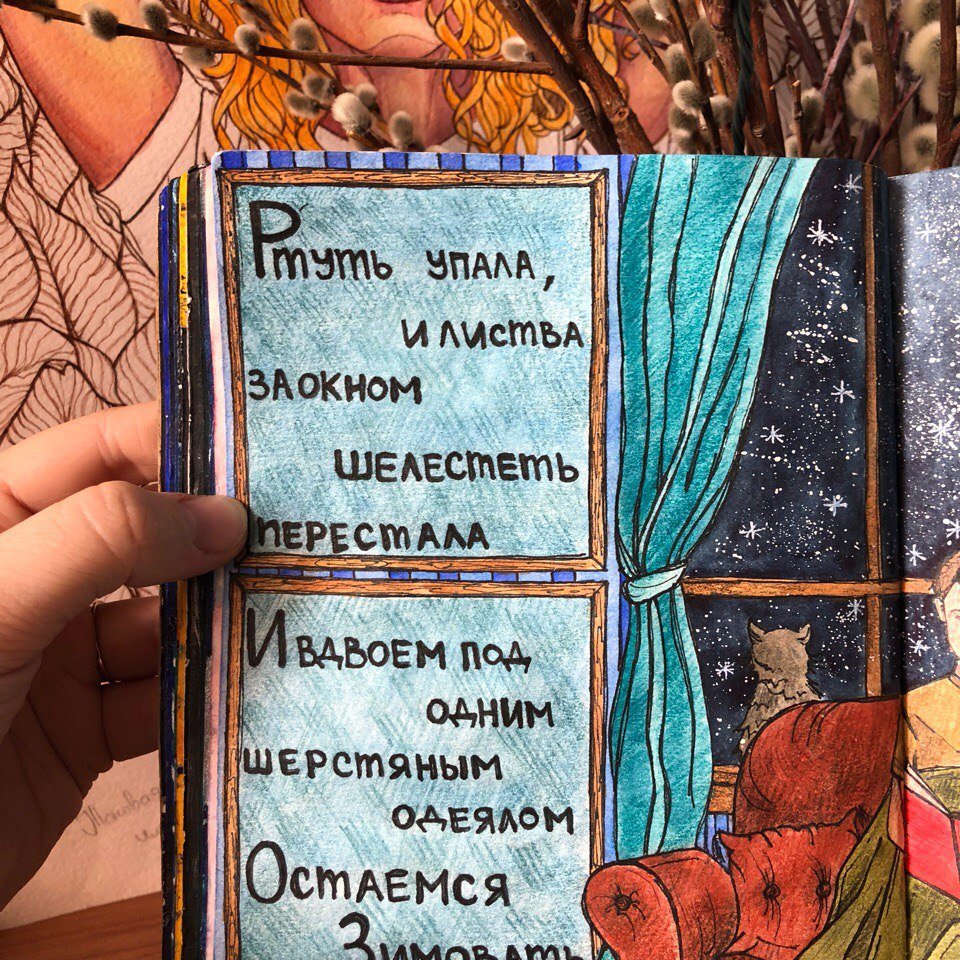 Ртуть упала,
и листва
за окном
шелестеть
перестала
И вдвоем под
одним
шерстяным
одеялом
Остаемся
Зимовать